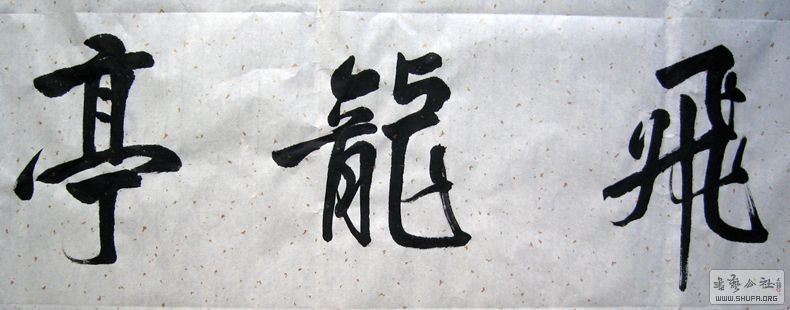 飛龍亭
書藝公社
WWW.SHUFA.ORG